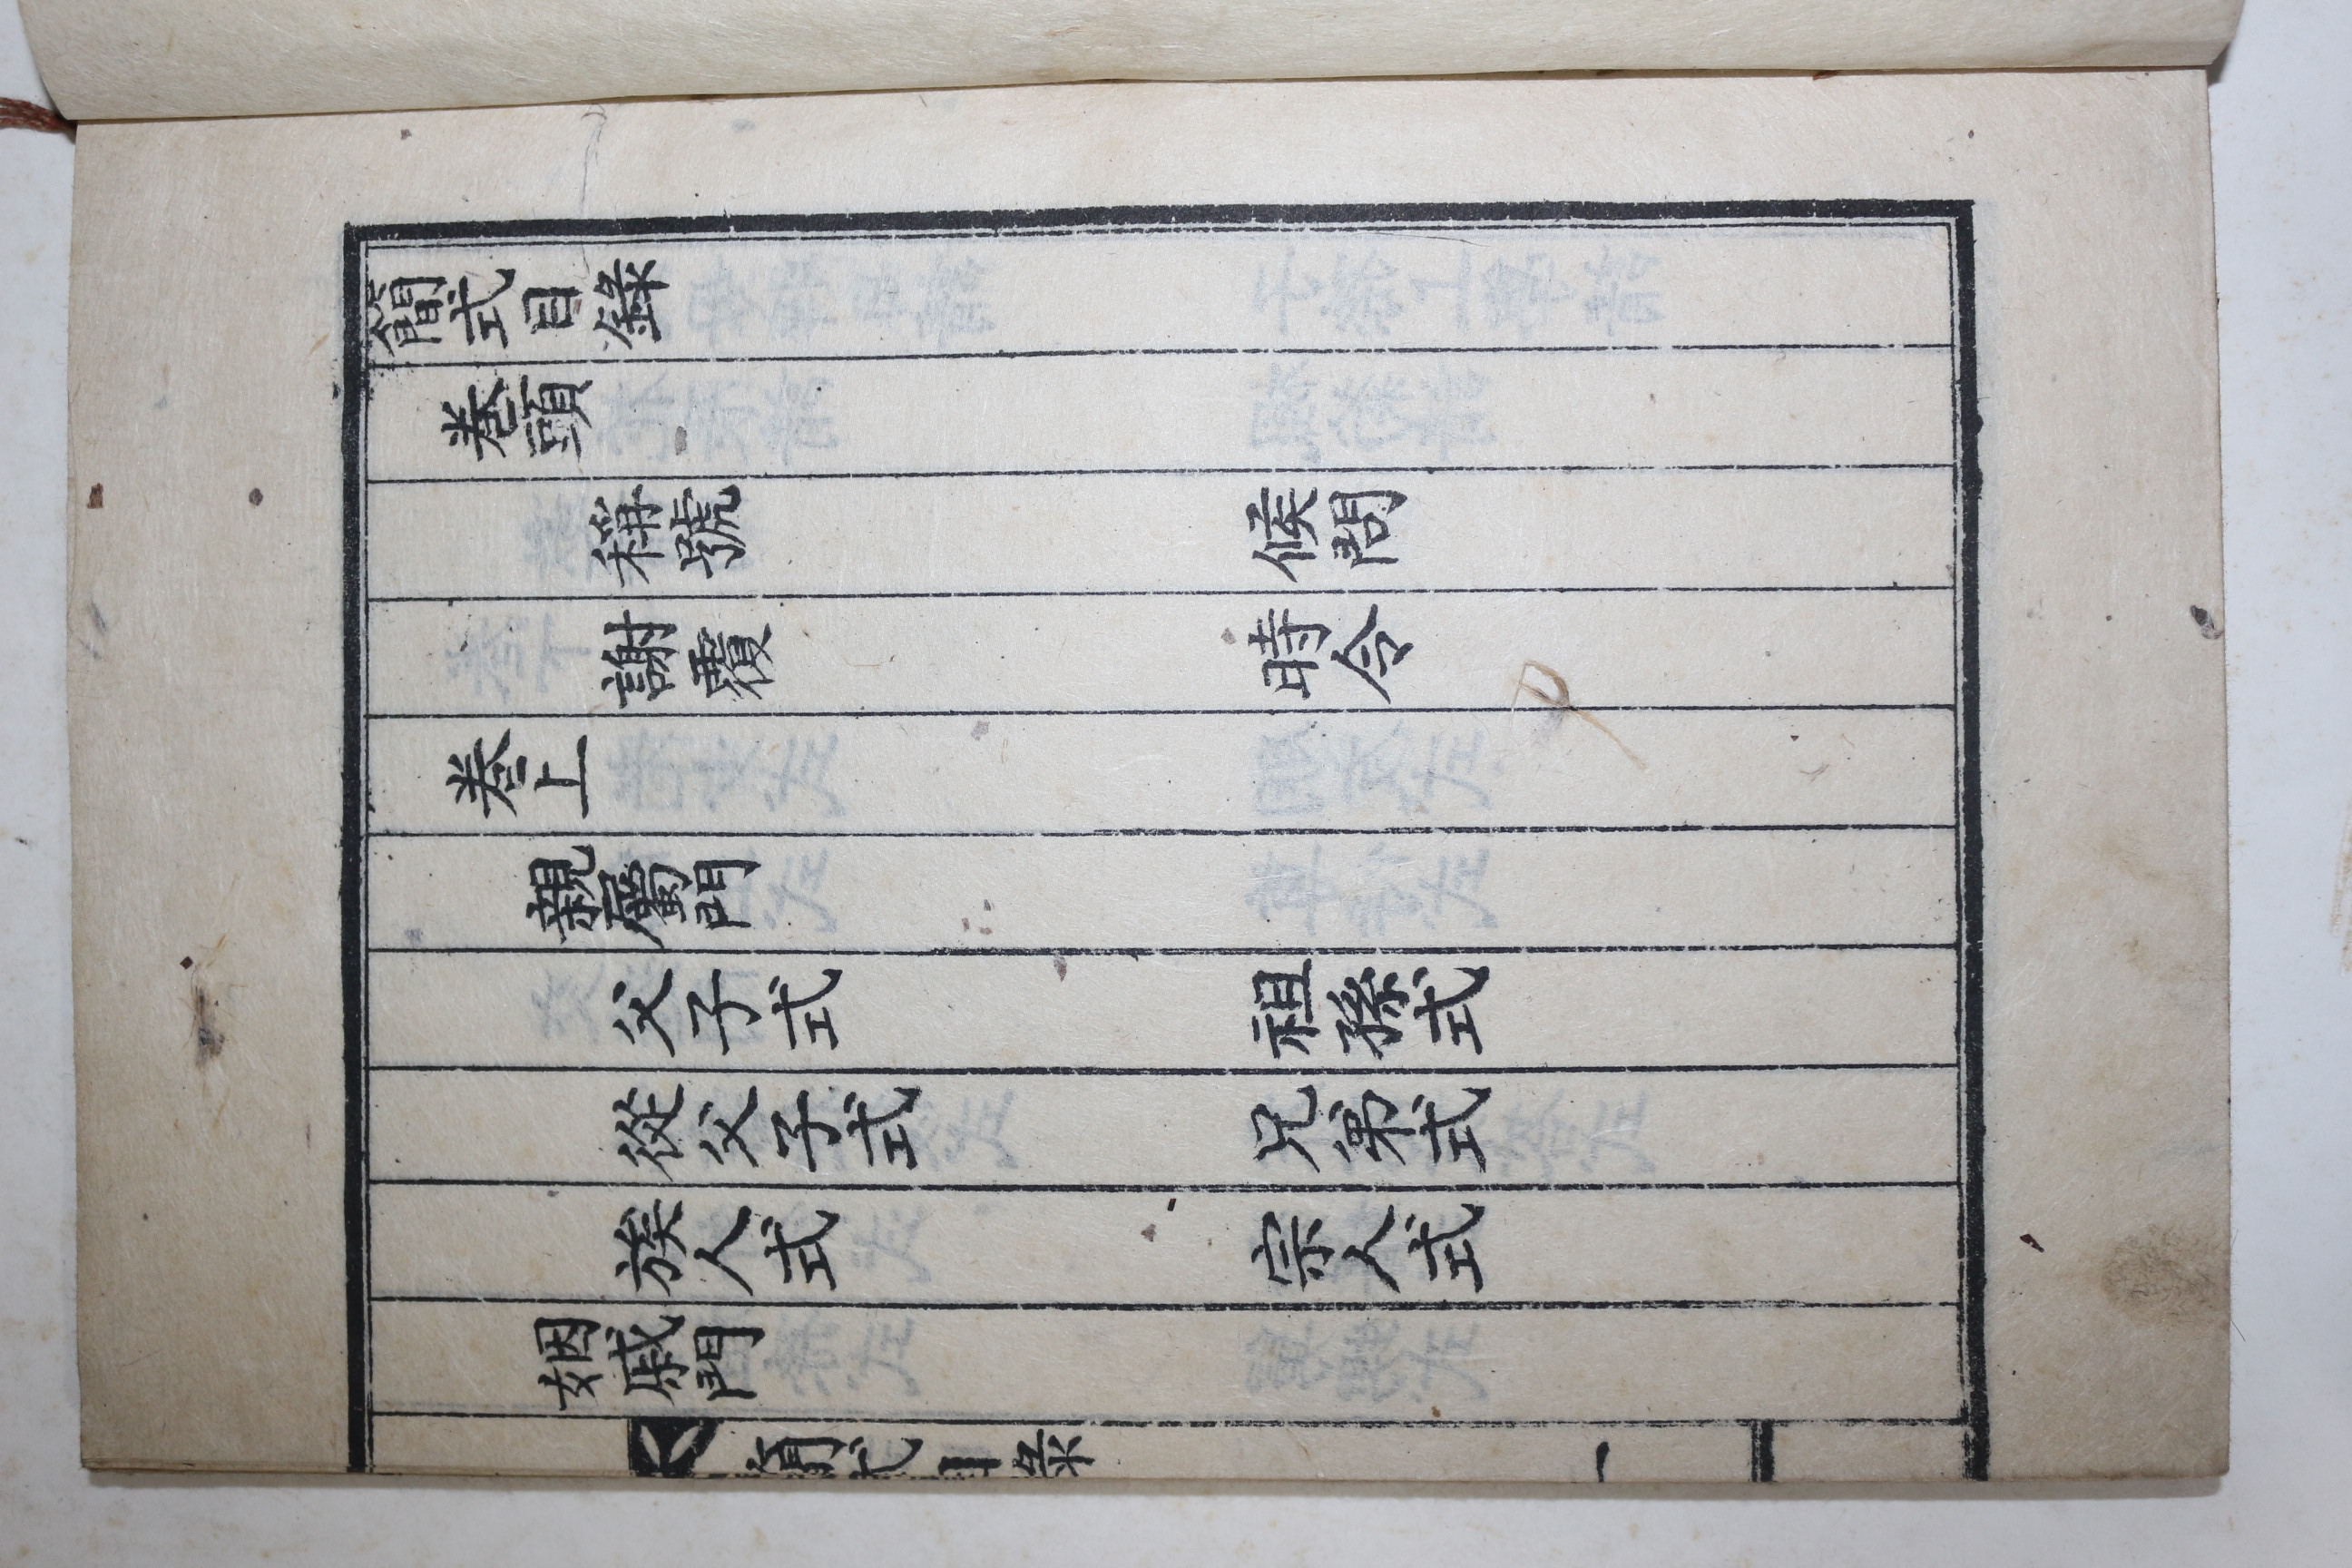 簡式目錄
卷頭
稱號 候問
謝覆 時令
卷上
親屬門
父子式 祖孫式
從父子式 兄弟式
族人式 宗人式
姻戚門
簡式目錄 一